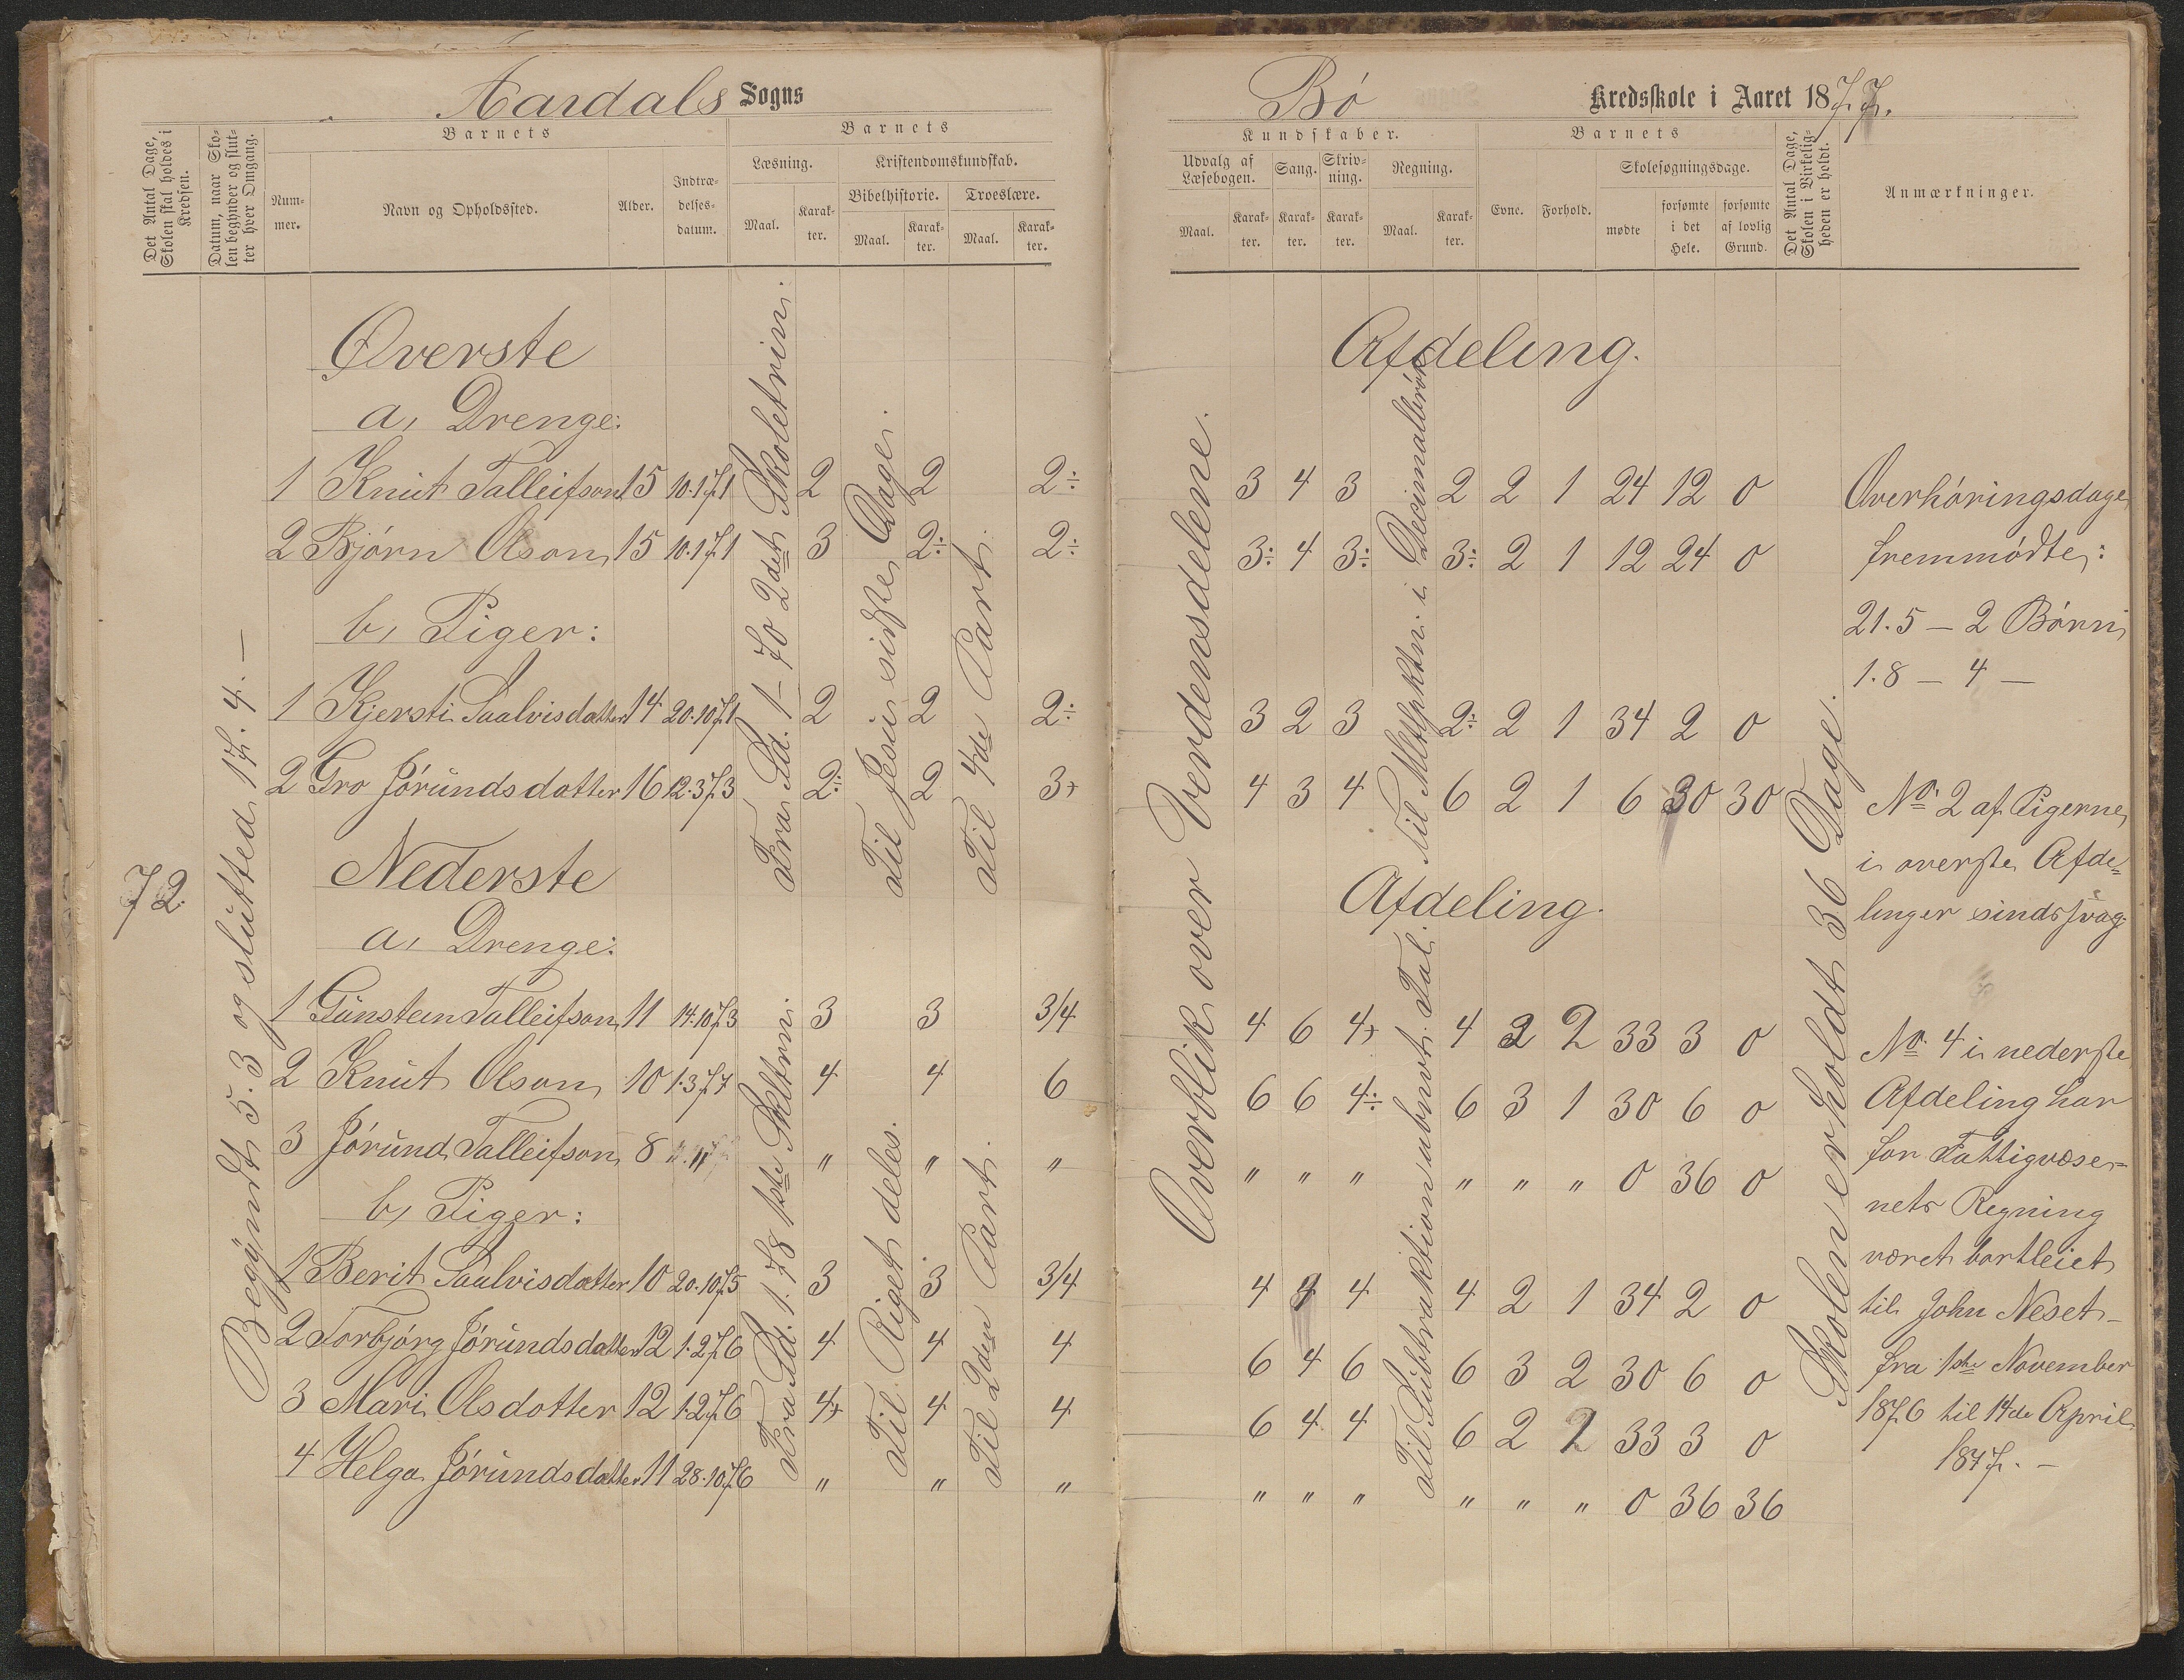 Aardals Sogns
Det Antal Dage, Skolen skal holdes i Kredsen.
Datum, naar Skolen begynder og slutter hver Omgang.
Barnets
Num-
mer.
Navn og Opholdssted.
Alder.
Indtræ-
delses-
datum.
Barnets
Læsning.
Maal.
Karak-
ter.
Kristendomskundskab.
Bibelhistorie.
Maal.
Karak-
ter.
Troeslære.
Maal.
Karak-
ter.
72.
Begyndt 5.3 og slutted 17.4. —
Øverste
a, Drenge:
1 Knut Talleifson 15 10.1.71 2 2 2÷
2 Bjørn Olson 15 10.1.71 3 2÷ 2÷
b, Piger:
1 Kjersti Saalvisdatter 14 20.10.71 2 2 2÷
2 Gro Jørundsdatter 16 12.3.73 2÷ 2 3+
Fra Sd. 1–70 2det Skoletrin.
Til Jesu sidste Dage.
Til 4de Part.
Nederste
a, Drenge:
1 Gunstein Talleifson 11 14.10.73 3 3 3/4
2 Knut Olson 10 1.3.77 4 4 6
3 Jørund Talleifson 8 " " "
b, Piger:
1 Berit Saalvisdatter 10 20.10.75 3 3 3/4
2 Torbjørg Jørundsdatter 12 1.2.76 4 4 4
3 Mari Olsdotter 12 1.2.76 4+ 4 4
4 Helga Jørundsdatter 11 28.10.76 " " "
Fra Sd. 1.78 1ste Skltrin.
Til Riget deles.
Til 2den Part.
Bø Kredsskole i Aaret 1877.
Kundskaber.
Udvalg af
Læsebogen.
Maal.
Karak-
ter.
Sang.
Karak-
ter.
Skriv-
ning.
Karak-
ter.
Regning.
Maal.
Karak-
ter.
Barnets
Evne.
Forhold.
Skolesøgningsdage.
mødte
forsømte
i det
Hele.
forsømte
af lovlig
Grund.
Det Antal Dage, Skolen i Virkeligheden er holdt.
Anmærkninger.
Afdeling.
3 4 3 2 2 1 24 12 0
3÷ 4 3÷ 3÷ 2 1 12 24 0
3 2 3 2÷ 2 1 34 2 0
4 3 4 6 2 1 6 30 30
Overblik over Verdensdelene.
Afdeling.
4 6 4+ 4 2 2 33 3 0
6 6 4÷ 6 3 1 30 6 0
" " " " " " 0 36 0
4 4 4 4 2 1 34 2 0
6 4 6 6 3 2 30 6 0
6 4 4 6 2 2 33 3 0
" " " " " " 0 36 36
Til Subtraktion ubnvt. Tal.
Skolen er holdt 36 Dage.
Overhøringsdage
fremmødte:
21.5 — 2 Børn
1.8 — 4 —
No. 2 af Pigerne
i øverste Afde-
linger sindssvag.
No. 4 i nederste
Afdeling har
for Fattigvæse-
nets Regning
været bortleiet
til John Neset
fra 1ste November
1876 til 14de April
1877. —